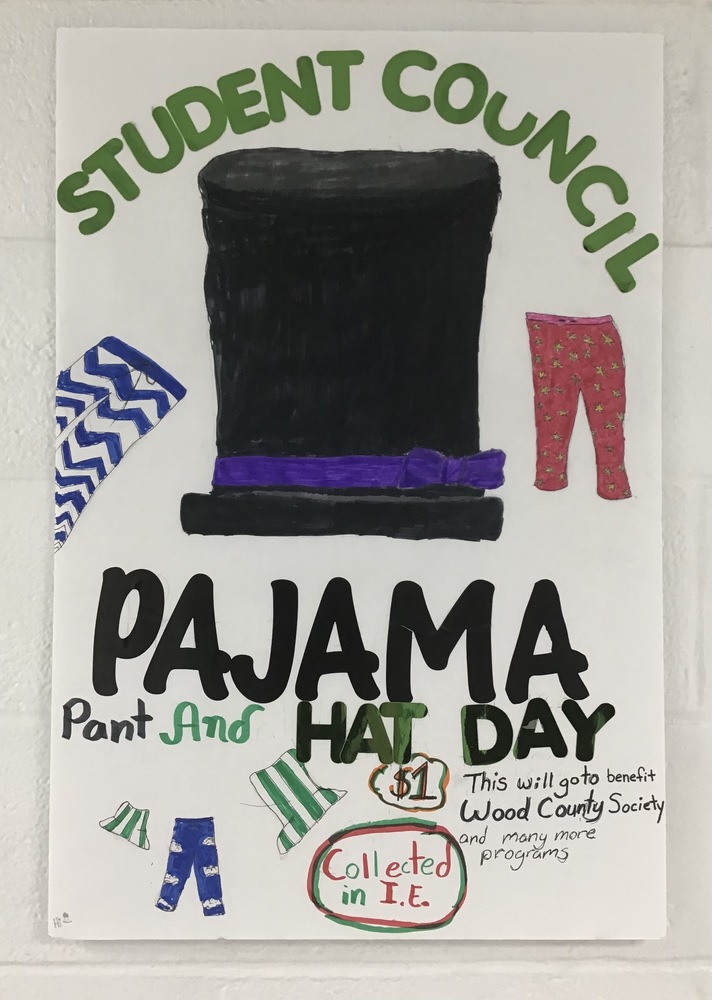 STUDENT COUNCIL
PAJAMA
Pant And HAT DAY
$1
This will go to benefit
Wood County Society
and many more
programs
Collected
in I.E.
Hi